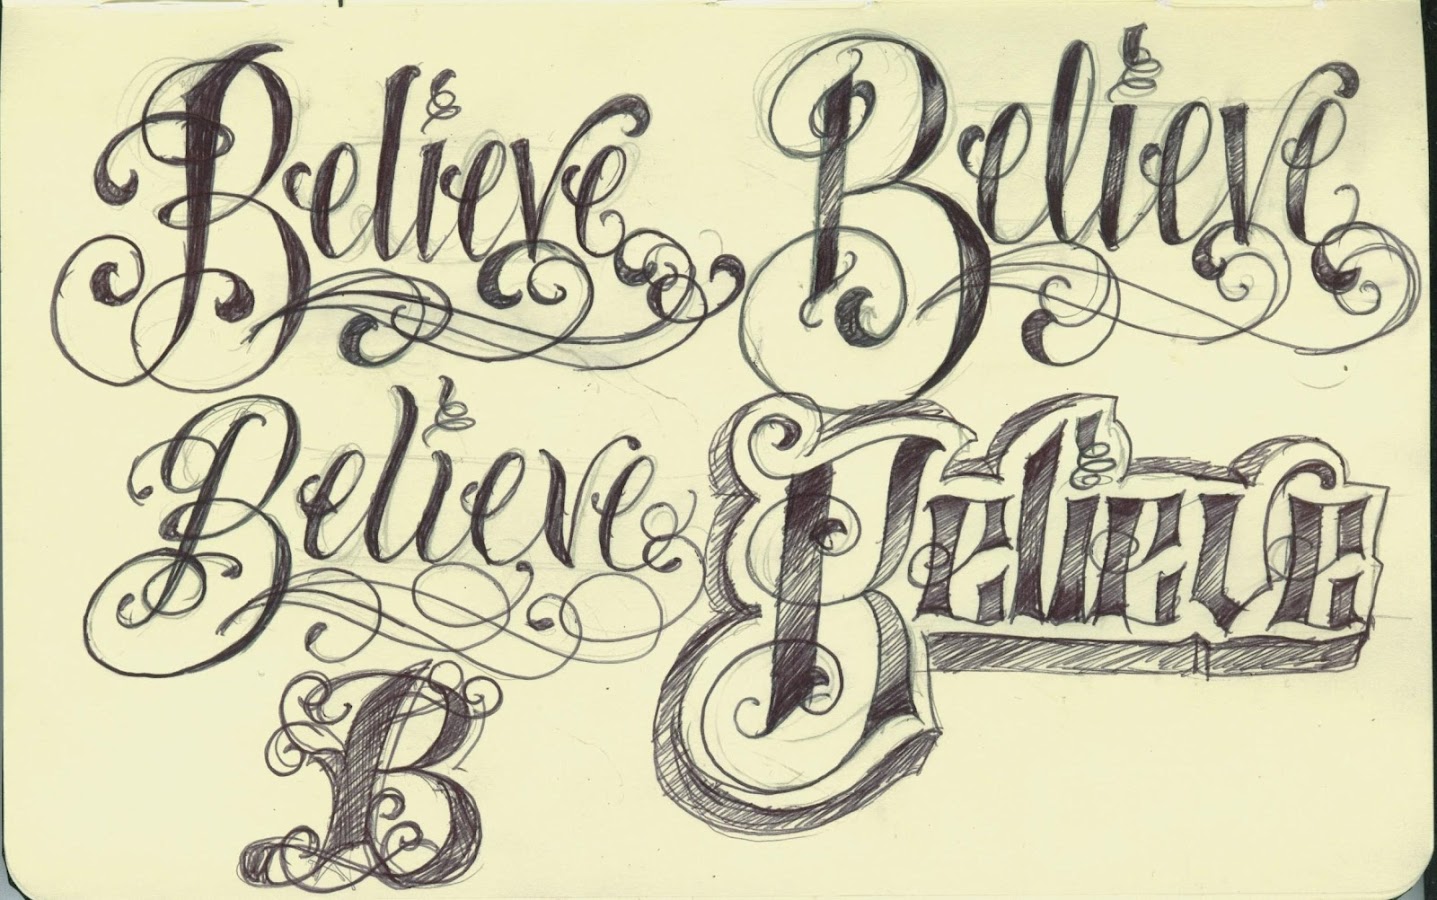 Believe
Believe
Believe
Believe
B